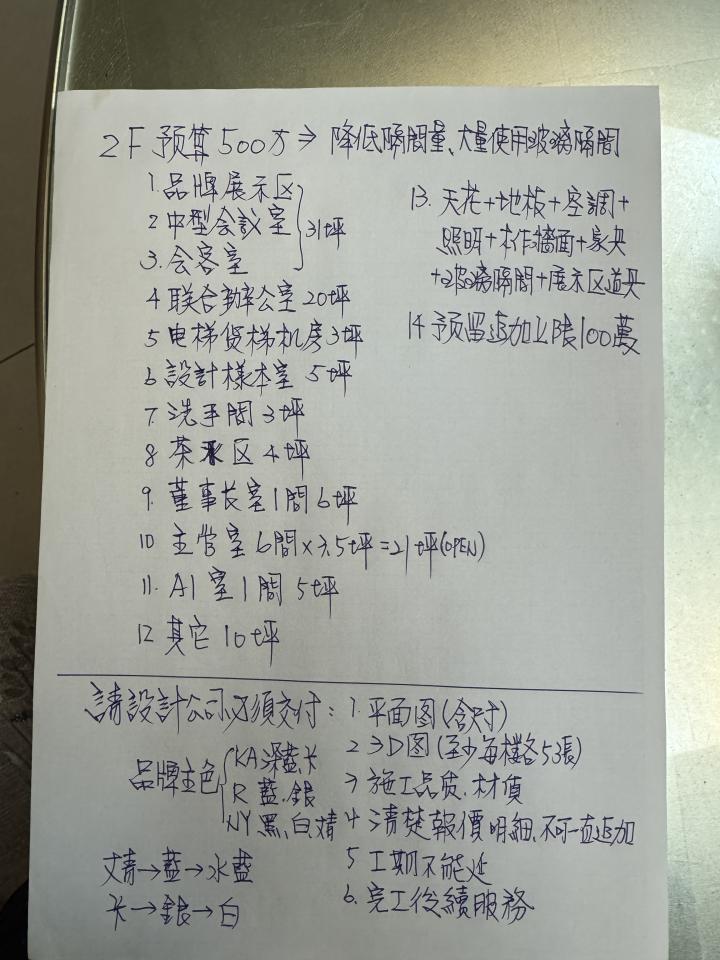 2F 预算500万 ⇒ 降低隔間量、大量使用玻璃隔間
1. 品牌展示区
2 中型会議室
3. 会客室
31坪
4 联合办公室 20坪
5 电梯貨梯机房 3坪
6 設計樣本室 5坪
7. 洗手間 3坪
8 茶水区 4坪
9. 董事长室1間 6坪
10 主管室 6間×3.5坪=21坪(OPEN)
11. AI室1間 5坪
12 其它 10坪
13. 天花+地板+空調+
照明+木作墻面+家具
+玻璃隔間+展示区道具
14 予留追加上限100萬
請設計公司必須交付:
1. 平面图(含尺寸)
2 3D图(至少每樓各5張)
3 施工品质、材質
4 清楚報價明細、不可一直追加
5 工期不能延
6. 完工後續服務
品牌主色
KA 深藍、卡
R 藍、銀
NY 黑、白、靖
丈青→藍→水藍
卡→銀→白